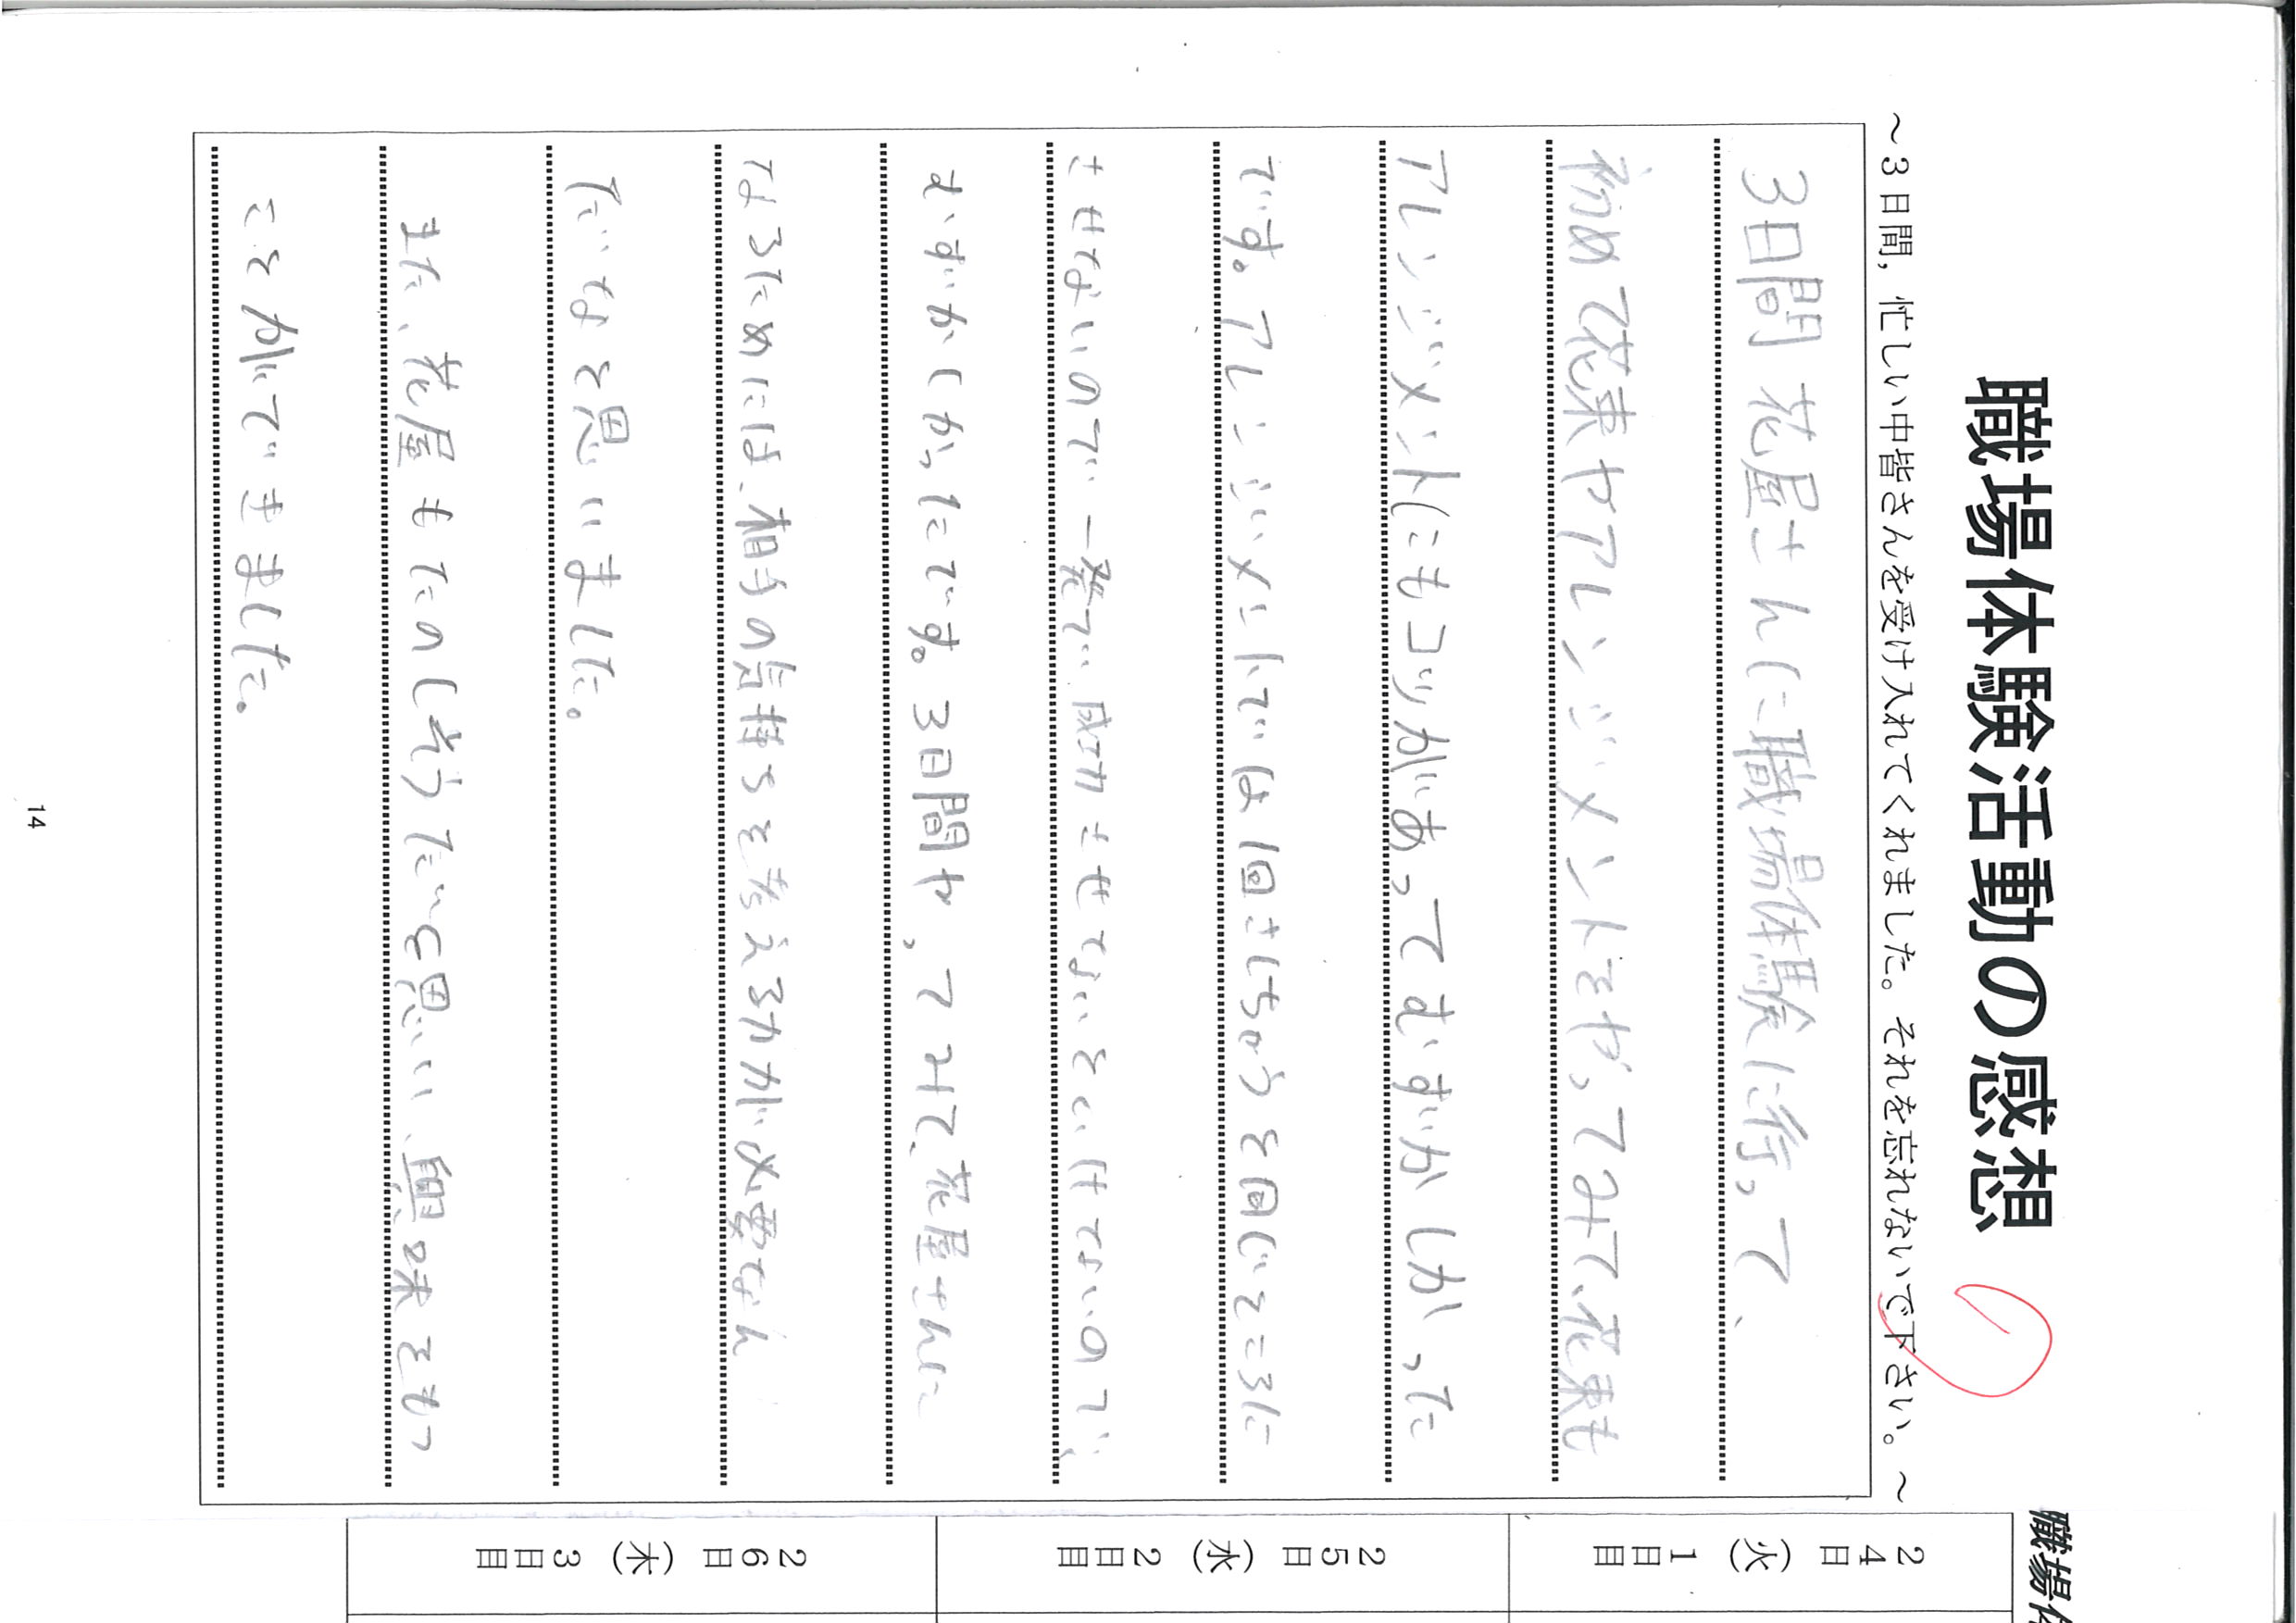 職場体験活動の感想
～3日間，忙しい中皆さんを受け入れてくれました。それを忘れないで下さい。～
3日間 花屋さんに職場体験に行って、
初めて花束やアレンジメントをやってみて、花束も
アレンジメントにもコツがあってむずかしかった
です。アレンジメントでは1回さしちゃうと同じところに
させないので一発で成功させないといけないので、
むずかしかったです。3日間やってみて、花屋さんに
なるためには、相手の気持ちを考える力が必要なん
だなと思いました。
また、花屋もたのしそうだと思い、興味をもつ
ことができました。
14
職場体
24日（火）
1日目
25日（水）
2日目
26日（木）
3日目